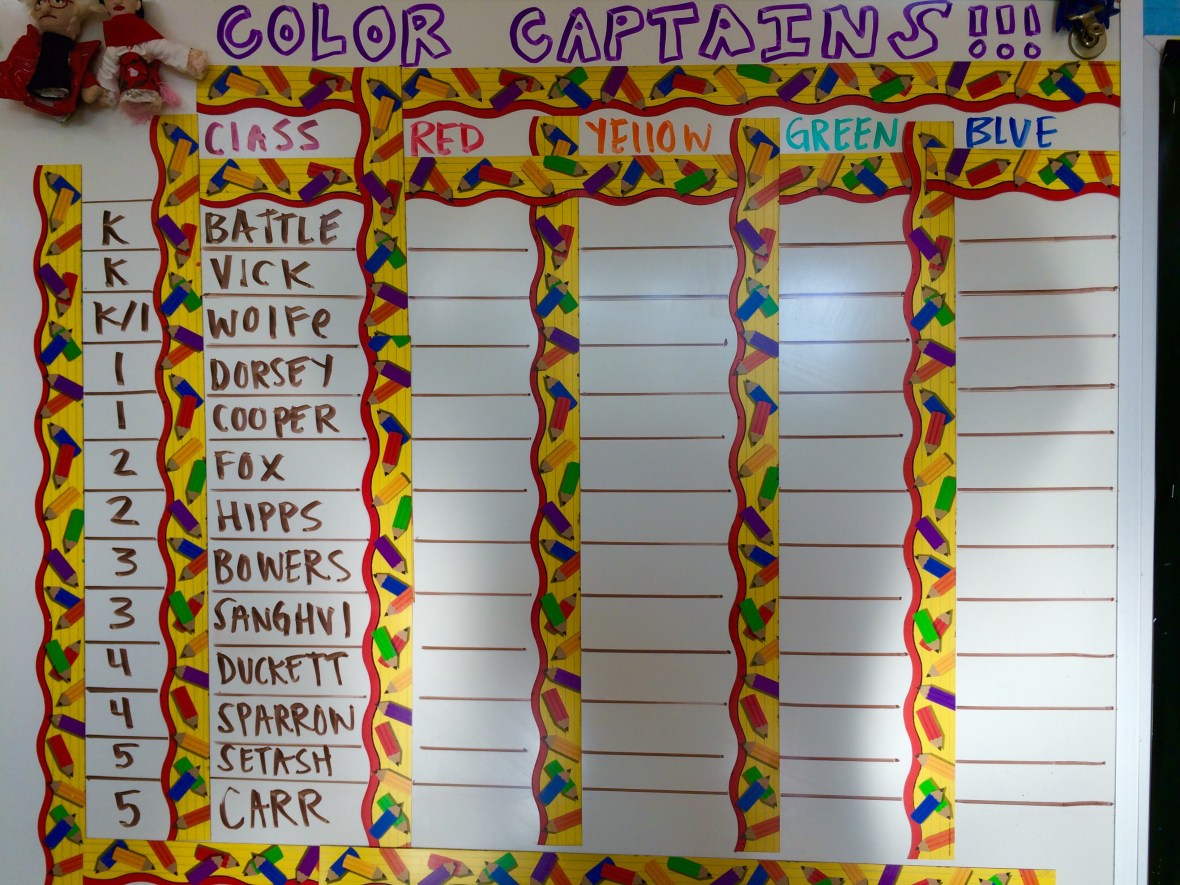 COLOR CAPTAINS!!!
ClASS RED YEllOW GREEN BLUE
K BATTLE
K VICK
K/1 WOlFe
1 DORSEY
1 COOPER
2 FOX
2 HIPPS
3 BOWERS
3 SANGHVI
4 DUCKETT
4 SPARROW
5 SETASH
5 CARR